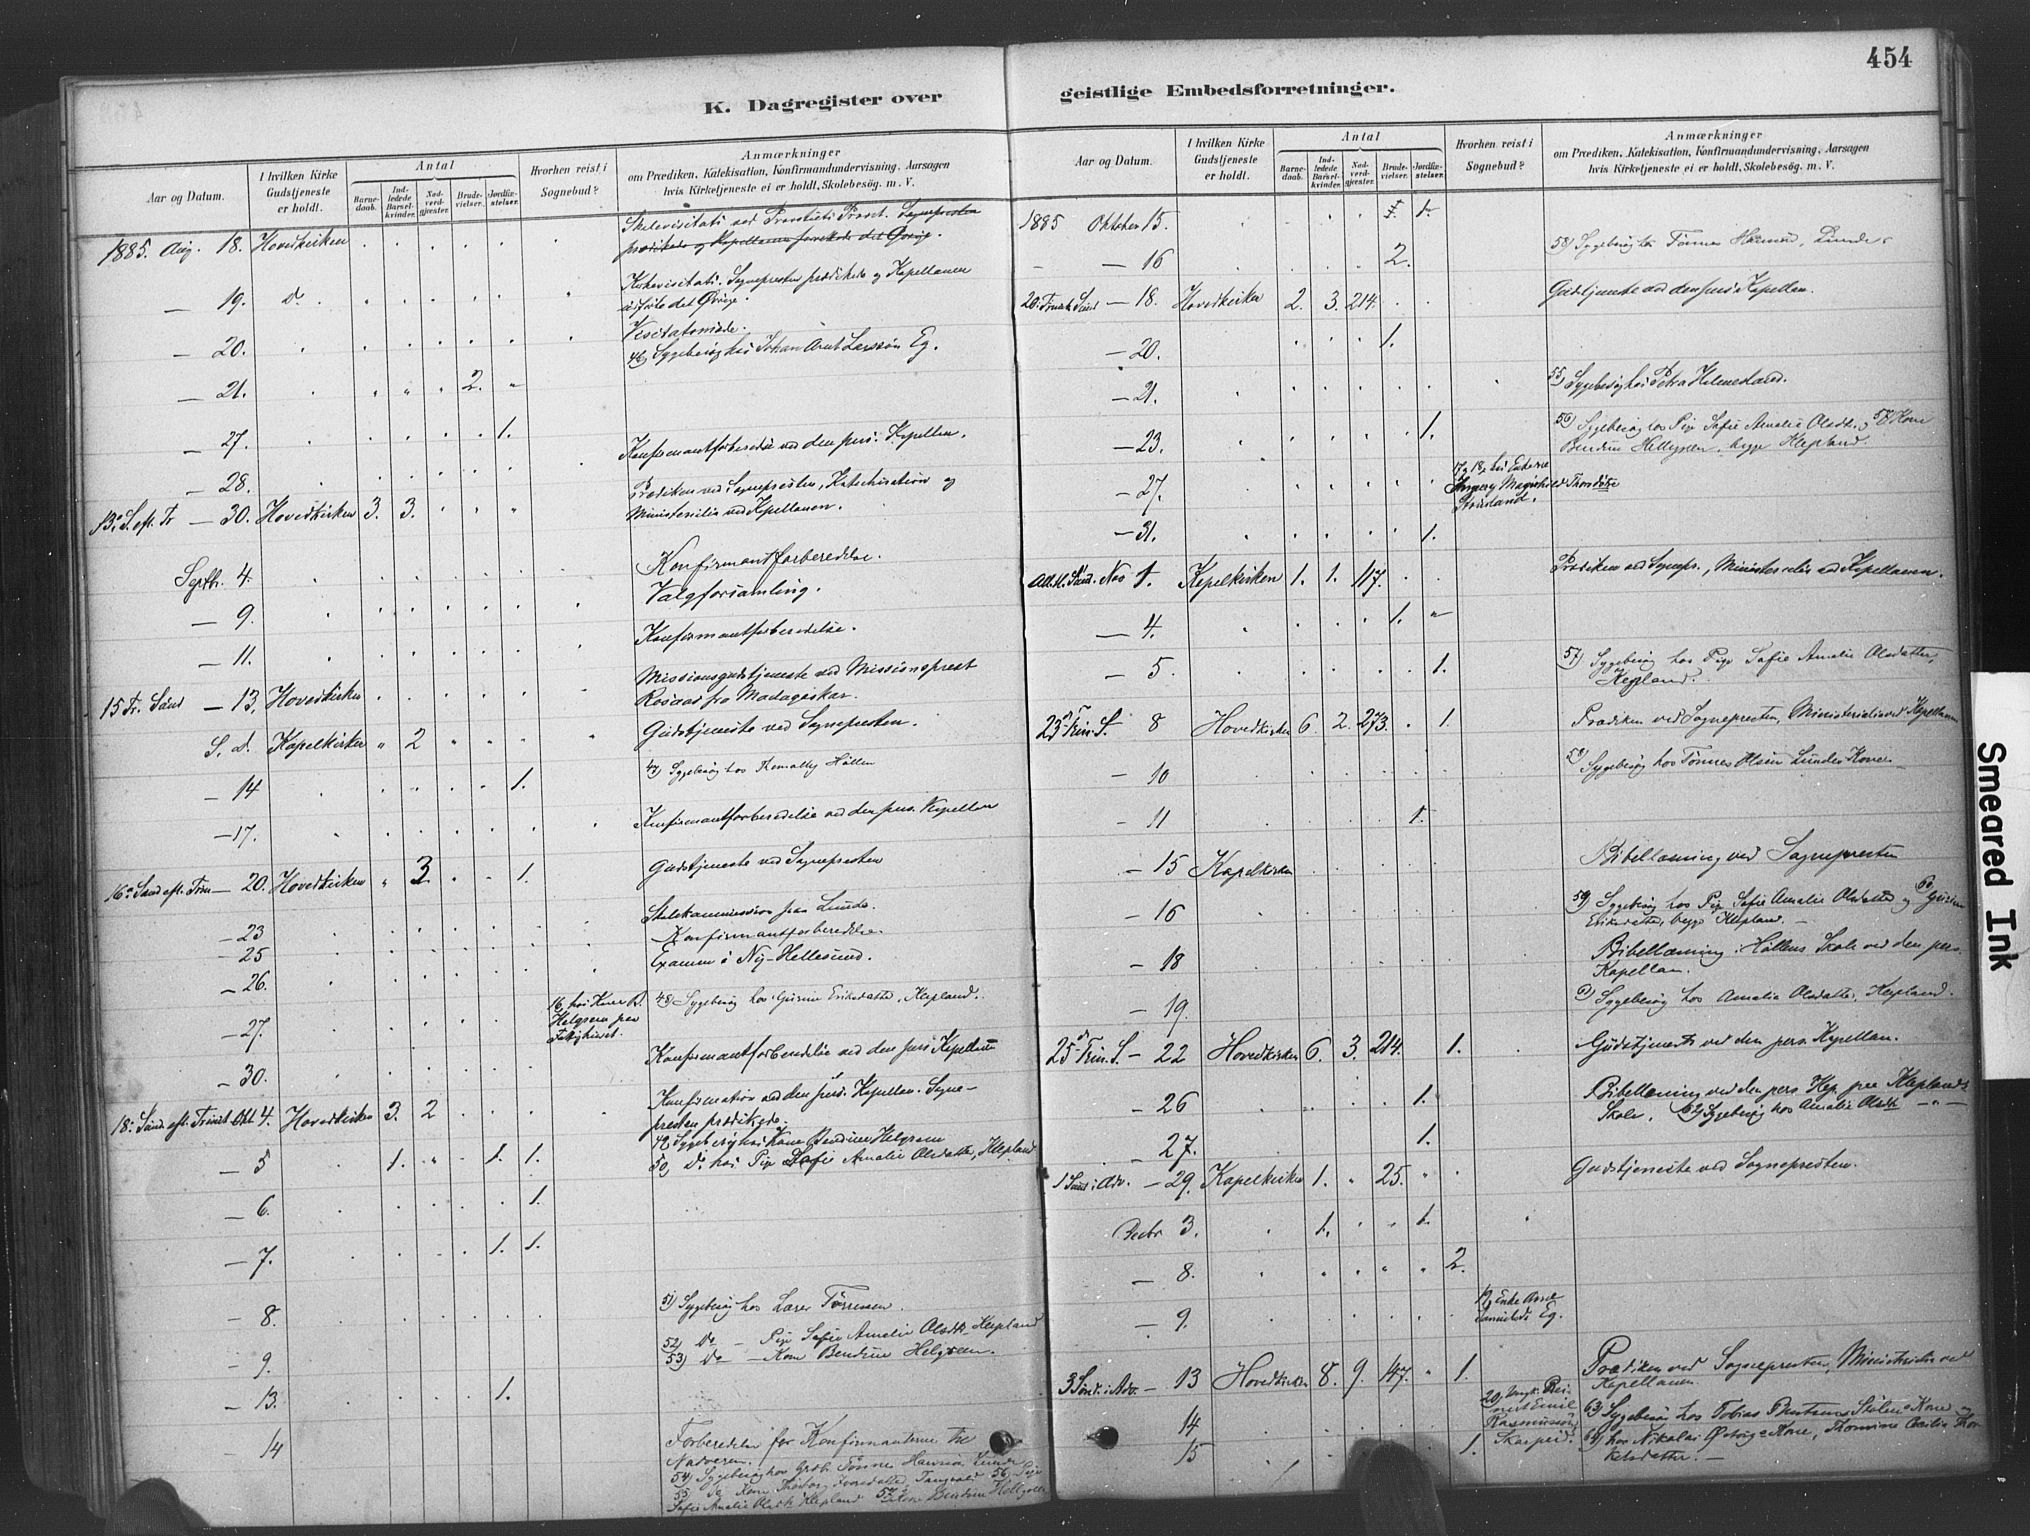 454
K. Dagregister over
geistlige Embedsforretninger.
Aar og Datum.
I hvilken Kirke Gudstjeneste er holdt.
Antal
Barnedaab.
Indledede Barselkvinder.
Nadverdgjæster.
Brudevielser.
Jordfæstelser.
Hvorhen reist i Sognebud?
Anmærkninger
om Prædiken, Katekisation, Konfirmandundervisning, Aarsagen
hvis Kirketjeneste ei er holdt, Skolebesøg. m. V.
1885. Aug. 18. Hovedkirken Skolevisitats ved Provst. Sognepresten
prædikede og Kapellanen forrettede det Øvrige.
— 19. do. Kirkevisitats. Sognepresten prædikede og Kapellanen
udførte det Øvrige.
— 20. Visitatsmøde.
46) Sygebesøg hos Johan Arnt Larssøn Eg.
— 21. 2.
— 27. 1.
— 28. Konfirmantforberedelse ved den pers. Kapellan.
13. S. eft. Tr — 30. Hovedkirken 3. 3. Prædiken ved Sognepresten, Katechisation og
Ministerialia ved Kapellanen.
Septbr. 4. Konfirmantforberedelse.
— 9. Valgforsamling.
— 11. Konfirmantforberedelse.
15 Tr. Sønd — 13. Hovedkirken Missionsgudstjeneste ved Missionsprest
Rosaas fra Madagaskar.
S. d. Kapelkirken 2 Gudstjeneste ved Sognepresten.
— 14 1. 47) Sygebesøg hos Høllen
— 17. Konfirmantforberedelse ved den pers. Kapellan
16. Sønd eft. Trin — 20. Hovedkirken 3. 1. Gudstjeneste ved Sognepresten
— 23 Skolekommission paa Lunde.
— 25 Konfirmantforberedelse.
— 26. Examen i Ny-Hellesund.
— 27. 16, hos Kone B. Helgesen paa Fattighuset. 48) Sygebesøg hos Gurine Eriksdatter, Klepland.
— 30. Konfirmantforberedelse ved den pers Kapellan
18. Sønd eft. Trinit Okt 4. Hovedkirken 3. 2 Konfirmation ved den pers. Kapellan. Sogne-
presten prædikede.
— 5 1. 1. 1. 49, Sygebesøg hos Kone Bendine Helgesen
50, Do hos Pige Sofie Amalie Olsdatter, Klepland
— 6. 1.
— 7. 1. 1.
— 8. 51) Sygebesøg hos Lærer Tørresen.
— 9. 52) Do — Pige Sofie Amalie Olsdtr Klepland
53) Do — Kone Bendine Helgesen.
— 13. 1.
— 14 Forberedelse for Konfirmanterne til
Nadveren. 54) Sygebesøg hos Tønnes Hansen Lunde
55 Do Kone 56 Pige
Sofie Amalie Olsdtr Klepland 57 Kone Bendine Helgesen
Aar og Datum.
I hvilken Kirke Gudstjeneste er holdt.
Antal
Barnedaab.
Indledede Barselkvinder.
Nadverdgjæster.
Brudevielser.
Jordfæstelser.
Hvorhen reist i Sognebud?
Anmærkninger
om Prædiken, Katekisation, Konfirmandundervisning, Aarsagen
hvis Kirketjeneste ei er holdt, Skolebesøg. m. V.
1885 Oktober 15. 1.
— 16 2. 58) Sygebesøg hos Tønnes Hansen, Lunde.
20. Trinit. Sønd — 18. Hovedkirken 2. 3. 214. Gudstjeneste ved den pers. Kapellan.
— 20. 1.
— 21. 55) Sygebesøg hos Petra
— 23. 1. 56) Sygebesøg hos Pige Sofie Amalie Olsdtr. og 57 Kone
Bendine Helgesen, begge Klepland.
— 27. 17 og 18, hos Enkerne
— 31. 1.
Nov 1. Kapelkirken 1. 1. 117. Prædiken ved Sognepr., Ministerialia ved Kapellanen.
— 4. 1.
— 5. 1. 57) Sygebesøg hos Pige Sofie Amalie Olsdatter,
Klepland.
23d Trin. S. 8 Hovedkirken 6. 2. 273. 1. Prædiken ved Sognepresten, Ministerialia ved Kapellanen
— 10 58) Sygebesøg hos Tønnes Olsen Lundes Kone
— 11 1.
— 15 Kapelkirken Bibellæsning ved Sognepresten
— 16 59) Sygebesøg hos Pige Sofie Amalie Olsdatter og 60, Gurine
Eriksdatter, begge Klepland. —
— 18 Bibellæsning i Høllens Skole ved den pers.
Kapellan.
— 19. Sygebesøg hos Amalie Olsdatter, Klepland.
25d Trin. S. — 22 Hovedkirken 6. 3. 214. 1. Gudstjeneste ved den pers. Kapellan.
— 26 1. Bibellæsning ved den pers Kap. paa Kleplands
Skole. 62, Sygebesøg hos Amalie Olsdtr — „ —
— 27. 1.
1 Sønd. i Adv. — 29. Kapelkirken 1. 25. Gudstjeneste ved Sognepresten.
Decbr 3. 1. 1.
— 8. 2.
— 9. 19, Enke Anne Eg.
3 Sønd. i Adv. — 13 Hovedkirken 8. 9. 147. 1. Prædiken ved Sognepresten, Ministerialia ved
Kapellanen.
14 20, Emil Rasmussen 63) Sygebesøg hos Tobias Kone og
15 1. 64) hos Nikolai Kone, Thomine Cecilie
Smeared Ink